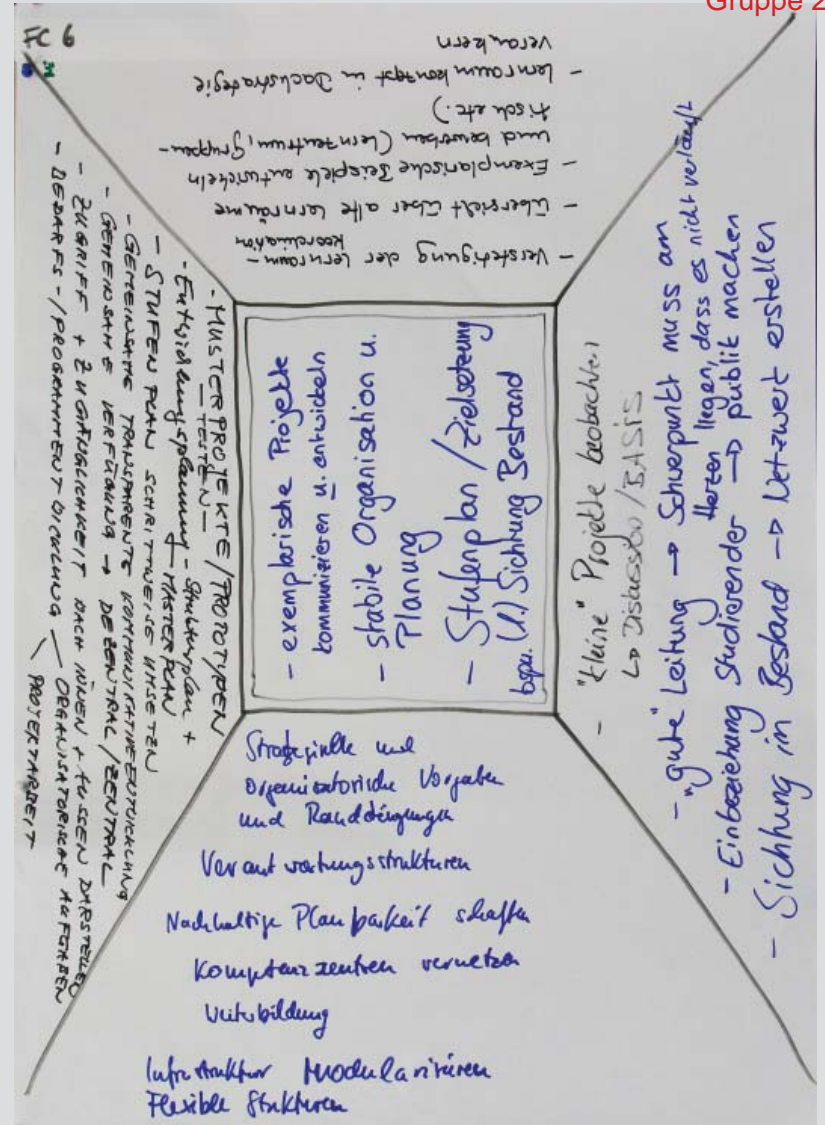 Gruppe 2
FC 6
- Verstetigung der Lernraum-
koordination
- Übersicht über alle Lernräume
- Exemplarische Beispiele entwickeln
und bewerben (Lernzentrum, Gruppen-
tisch etc.)
- Lernraumkonzept in Dachstrategie
verankern
- MUSTERPROJEKTE/PROTOTYPEN
- TESTEN -
- Entwicklungsplanung - Strukturplan +
MASTERPLAN
- STUFENPLAN SCHRITTWEISE UMSETZEN
- GEMEINSAME TRANSPARENTE KOMMUNIKATIVE ENTWICKLUNG
- GEMEINSAME VERFÜGUNG → DEZENTRAL/ZENTRAL
- ZUGRIFF + ZUGÄNGLICHKEIT NACH INNEN + AUSSEN DARSTELLEN
- BEDARFS-/PROGRAMMENTWICKLUNG — ORGANISATORISCHE AUFGABEN
PROJEKTARBEIT
- exemplarische Projekte
kommunizieren u. entwickeln
- stabile Organisation u.
Planung
- Stufenplan/Zielsetzung
bspw. (1.) Sichtung Bestand
- "kleine" Projekte beobachten
↳ Diskussion/BASIS
- "gute" Leitung → Schwerpunkt muss am
Herzen liegen, dass es nicht verläuft
- Einbeziehung Studierender → publik machen
- Sichtung in Bestand → Netzwert erstellen
Strategische und
organisatorische Vorgaben
und Randbedingungen
Verantwortungsstrukturen
Nachhaltige Planbarkeit schaffen
Kompetenzzentren vernetzen
Weiterbildung
Infrastruktur Modularisieren
Flexible Strukturen